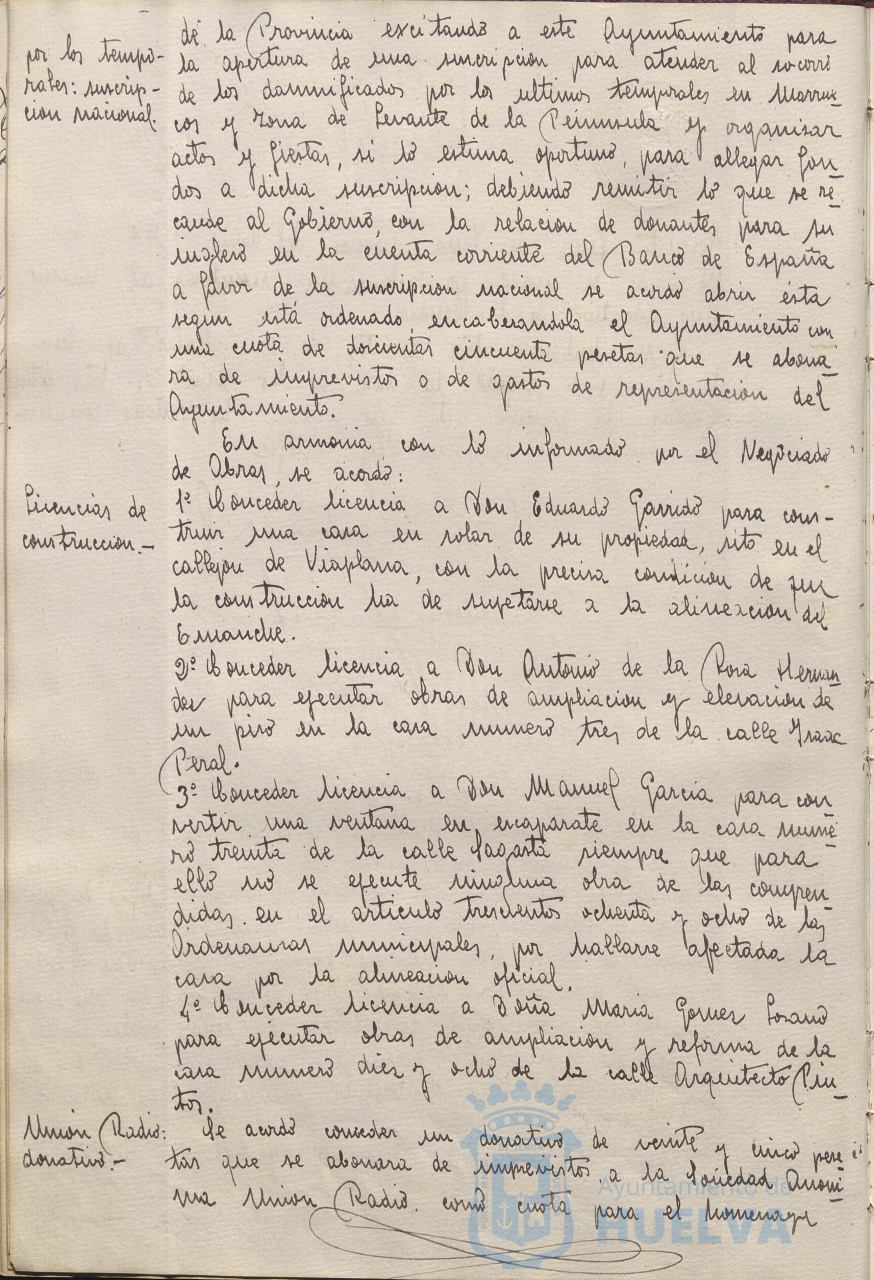 por los tempo-
rales: suscrip-
cion nacional.
de la Provincia excitando a este Ayuntamiento para
la apertura de una suscripcion para atender al socorro
de los damnificados por los ultimos temporales en Marrue-
cos y Zona de Levante de la Peninsula y organizar
actos y fiestas, si lo estima oportuno, para allegar fon-
dos a dicha suscripcion; debiendo remitir lo que se re-
caude al Gobierno, con la relacion de donantes para su
ingreso en la cuenta corriente del Banco de España
a favor de la suscripcion nacional se acordo abrir ésta
segun está ordenado, encabezandola el Ayuntamiento con
una cuota de doscientas cincuenta pesetas que se abona-
ra de imprevistos o de gastos de representacion del
Ayuntamiento.
En armonia con lo informado por el Negociado
de Obras, se acordo:
Licencias de
construccion.-
1º Conceder licencia a Don Eduardo Garrido para cons-
truir una casa en solar de su propiedad, sito en el
callejon de Viaplana, con la precisa condicion de que
la construccion ha de sujetarse a la alineacion del
Ensanche.
2º Conceder licencia a Don Antonio de la Rosa Hernan-
dez para ejecutar obras de ampliacion y elevacion de
un piso en la casa numero tres de la calle Isaac
Peral.
3º Conceder licencia a Don Manuel Garcia para con-
vertir una ventana en escaparate en la casa nume-
ro treinta de la calle Sagasta siempre que para
ello no se ejecute ninguna obra de las compren-
didas en el articulo trescientos ochenta y ocho de las
Ordenanzas municipales, por hallarse afectada la
casa por la alineacion oficial.
4º Conceder licencia a Doña Maria Gomez Lozano
para ejecutar obras de ampliacion y reforma de la
casa numero diez y ocho de la calle Arquitecto Pin-
tos.
Unión Radio:
donativo.-
Se acordo conceder un donativo de veinte y cinco pese-
tas que se abonara de imprevistos a la Sociedad Anoni-
ma Union Radio como cuota para el homenage
Ayuntamiento de
HUELVA